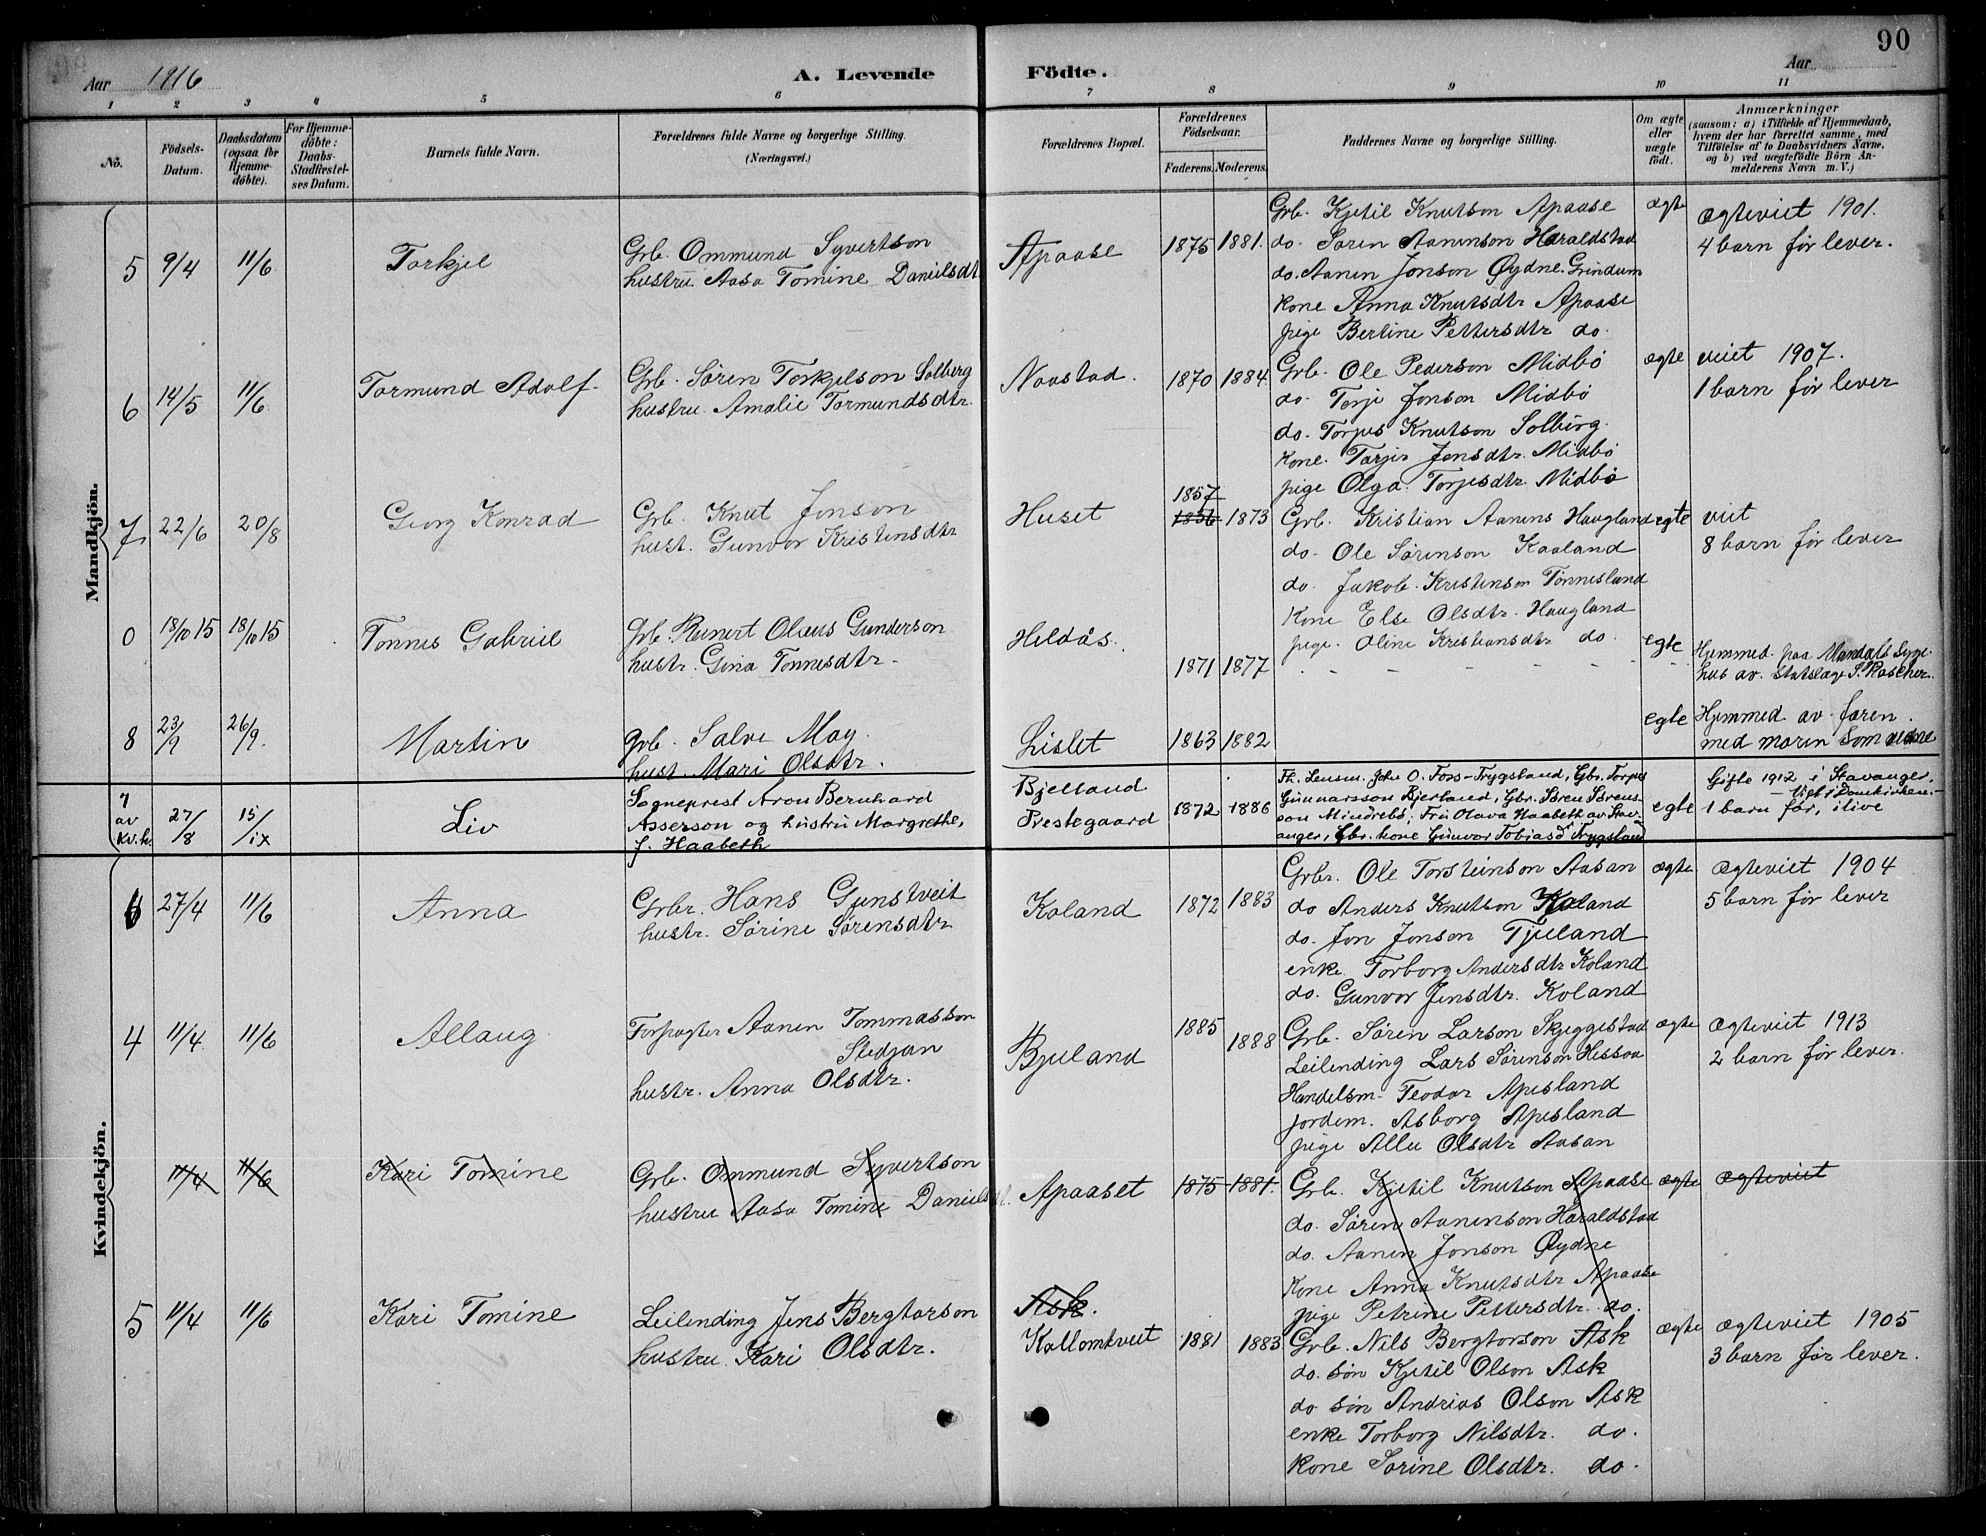 90
Aar 1916 A. Levende Födte. Aar
1 2 3 4 5 6 7 8 9 10 11
No.
Födsels-Datum.
Daabsdatum (ogsaa for Hjemme-döbte).
For Hjemme-döbte: Daabs-Stadfæstel-ses Datum.
Barnets fulde Navn.
Forældrenes fulde Navne og borgerlige Stilling.
(Næringsvei.)
Forældrenes Bopæl.
Forældrenes Födselsaar.
Faderens. Moderens.
Faddernes Navne og borgerlige Stilling.
Om ægte eller uægte födt.
Anmærkninger
(saasom: a) i Tilfælde af Hjemmedaab,
hvem der har forrettet samme, med
Tilföielse af to Daabsvidners Navne,
og b) ved uægtefödte Börn An-
melderens Navn m. V.)
Mandkjön.
5 9/4 11/6 Torkjel
Grb. Ommund Syvertson
hustru Aasa Tomine Danielsdt
Apaase 1875 1881.
Grb. Kjetil Knutson Apaase
do. Søren Aanenson Haraldstad
do. Aanen Jonson Øydne. Grindum
kone Anna Knutsdtr Apaase
pige Bertine Pettersdtr do.
ægte
ægteviet 1901.
4 barn før lever.
6 14/5 11/6 Tormund Adolf.
Grb. Søren Torkjelson Solberg
hustru. Amalie Tormundsdtr.
Naastad. 1870 1884
Grb. Ole Pederson Midbö
do. Torje Jonson Midbö
do. Torjus Knutson Solberg.
kone. Torjer Jonsdtr. Midbö
pige Olga. Torjesdtr. Midbö
ægte
viet 1907.
1 barn før lever
7 22/6 20/8 Georg Konrad
Grb. Knut Jonson
hust. Gunvor Kristensdtr
Huset 1857 1856 1873
Grb. Kristian Aanens Haugland
do. Ole Sørenson Kaaland
do. Jakob. Kristenson Tønnesland
kone Else Olsdtr. Haugland
pige. Oline Kristiansdtr do.
egte
viet
8 barn før lever
0 18/10 15 18/10 15 Tønnes Gabriel
Grb. Reinert Olaus Gunderson
hustr. Gina Tønnesdtr.
Heldås. 1871 1877
egte
Hjemmed. paa Mandals Syge-
hus av. Statslæge P. Roscher.
8 23/9 26/9. Martin
grb. Salve May.
hust. Mari Olsdtr.
Lislet 1863 1882
egte
Hjemmed av faren.
med moren som vidne
7 av Kv.k. 27/8 15/ix Liv
Sogneprest Aron Bernhard
Asserson og hustru Margrethe,
f. Haabeth
Bjelland
Prestegaard 1872 1886
Fh. Lensm. John O. Foss-Trygsland, Gbr. Torjus
Gunnarsson Bjerland, Gbr. Søren Sørens-
son Mindrebö, Fru Olava Haabeth av Stav-
anger, Gbr. kone Gunvor Tobiasd Trygsland
egte
Gifte 1912 i Stavanger.
– Vigt i Domkirken. –
1 barn før, ilive
Kvindekjön.
27/4 11/6 Anna
Grbr. Hans Gunstveit
hustr. Sørine Sørensdtr
Koland 1872 1883
Grbr. Ole Torsteinson Aasan
do Anders Knutson Koland
do. Jon Jonson Tjeland
enke. Torborg Andersdtr Koland
do. Gunvor Jensdtr. Koland
ægte
ægteviet 1904
5 barn før lever
4 11/4 11/6 Allaug
Forpagter Aanen Tommasson
Stedjan
hustr. Anna Olsdtr.
Bjeland 1885 1888
Grb. Søren Larson Skjeggestad
Leilending Lars Sørenson Hessaa
Handelsm. Teodor Apesland
jordem. Asborg Apesland
pige Alle Olsdtr Aasan
ægte
ægteviet 1913
2 barn før lever.
11/4 11/6 Kari Tomine
Grb. Ommund Syvertson
hustru Aasa Tomine Danielsdt.
Apaaset 1875 1881.
Grb. Kjetil Knutson Apaase
do. Søren Aanenson Haraldstad
do. Aanen Jonson Øydne
kone Anna Knutsdtr Apaase
pige Petrine Pettersdtr. do.
ægte
ægteviet
5 11/4 11/6 Kari Tomine
Leilending Jens Bergtorson
hustru Kari Olsdtr.
Ask.
Kollomtveit 1881 1883
Grb. Nils Bergtorson Ask
do. søn Kjetil Olson Ask
do søn Andreas Olson Ask
enke Torborg Nilsdtr. do.
kone Sørine Olsdtr. do.
ægte
ægteviet 1905
3 barn før lever.